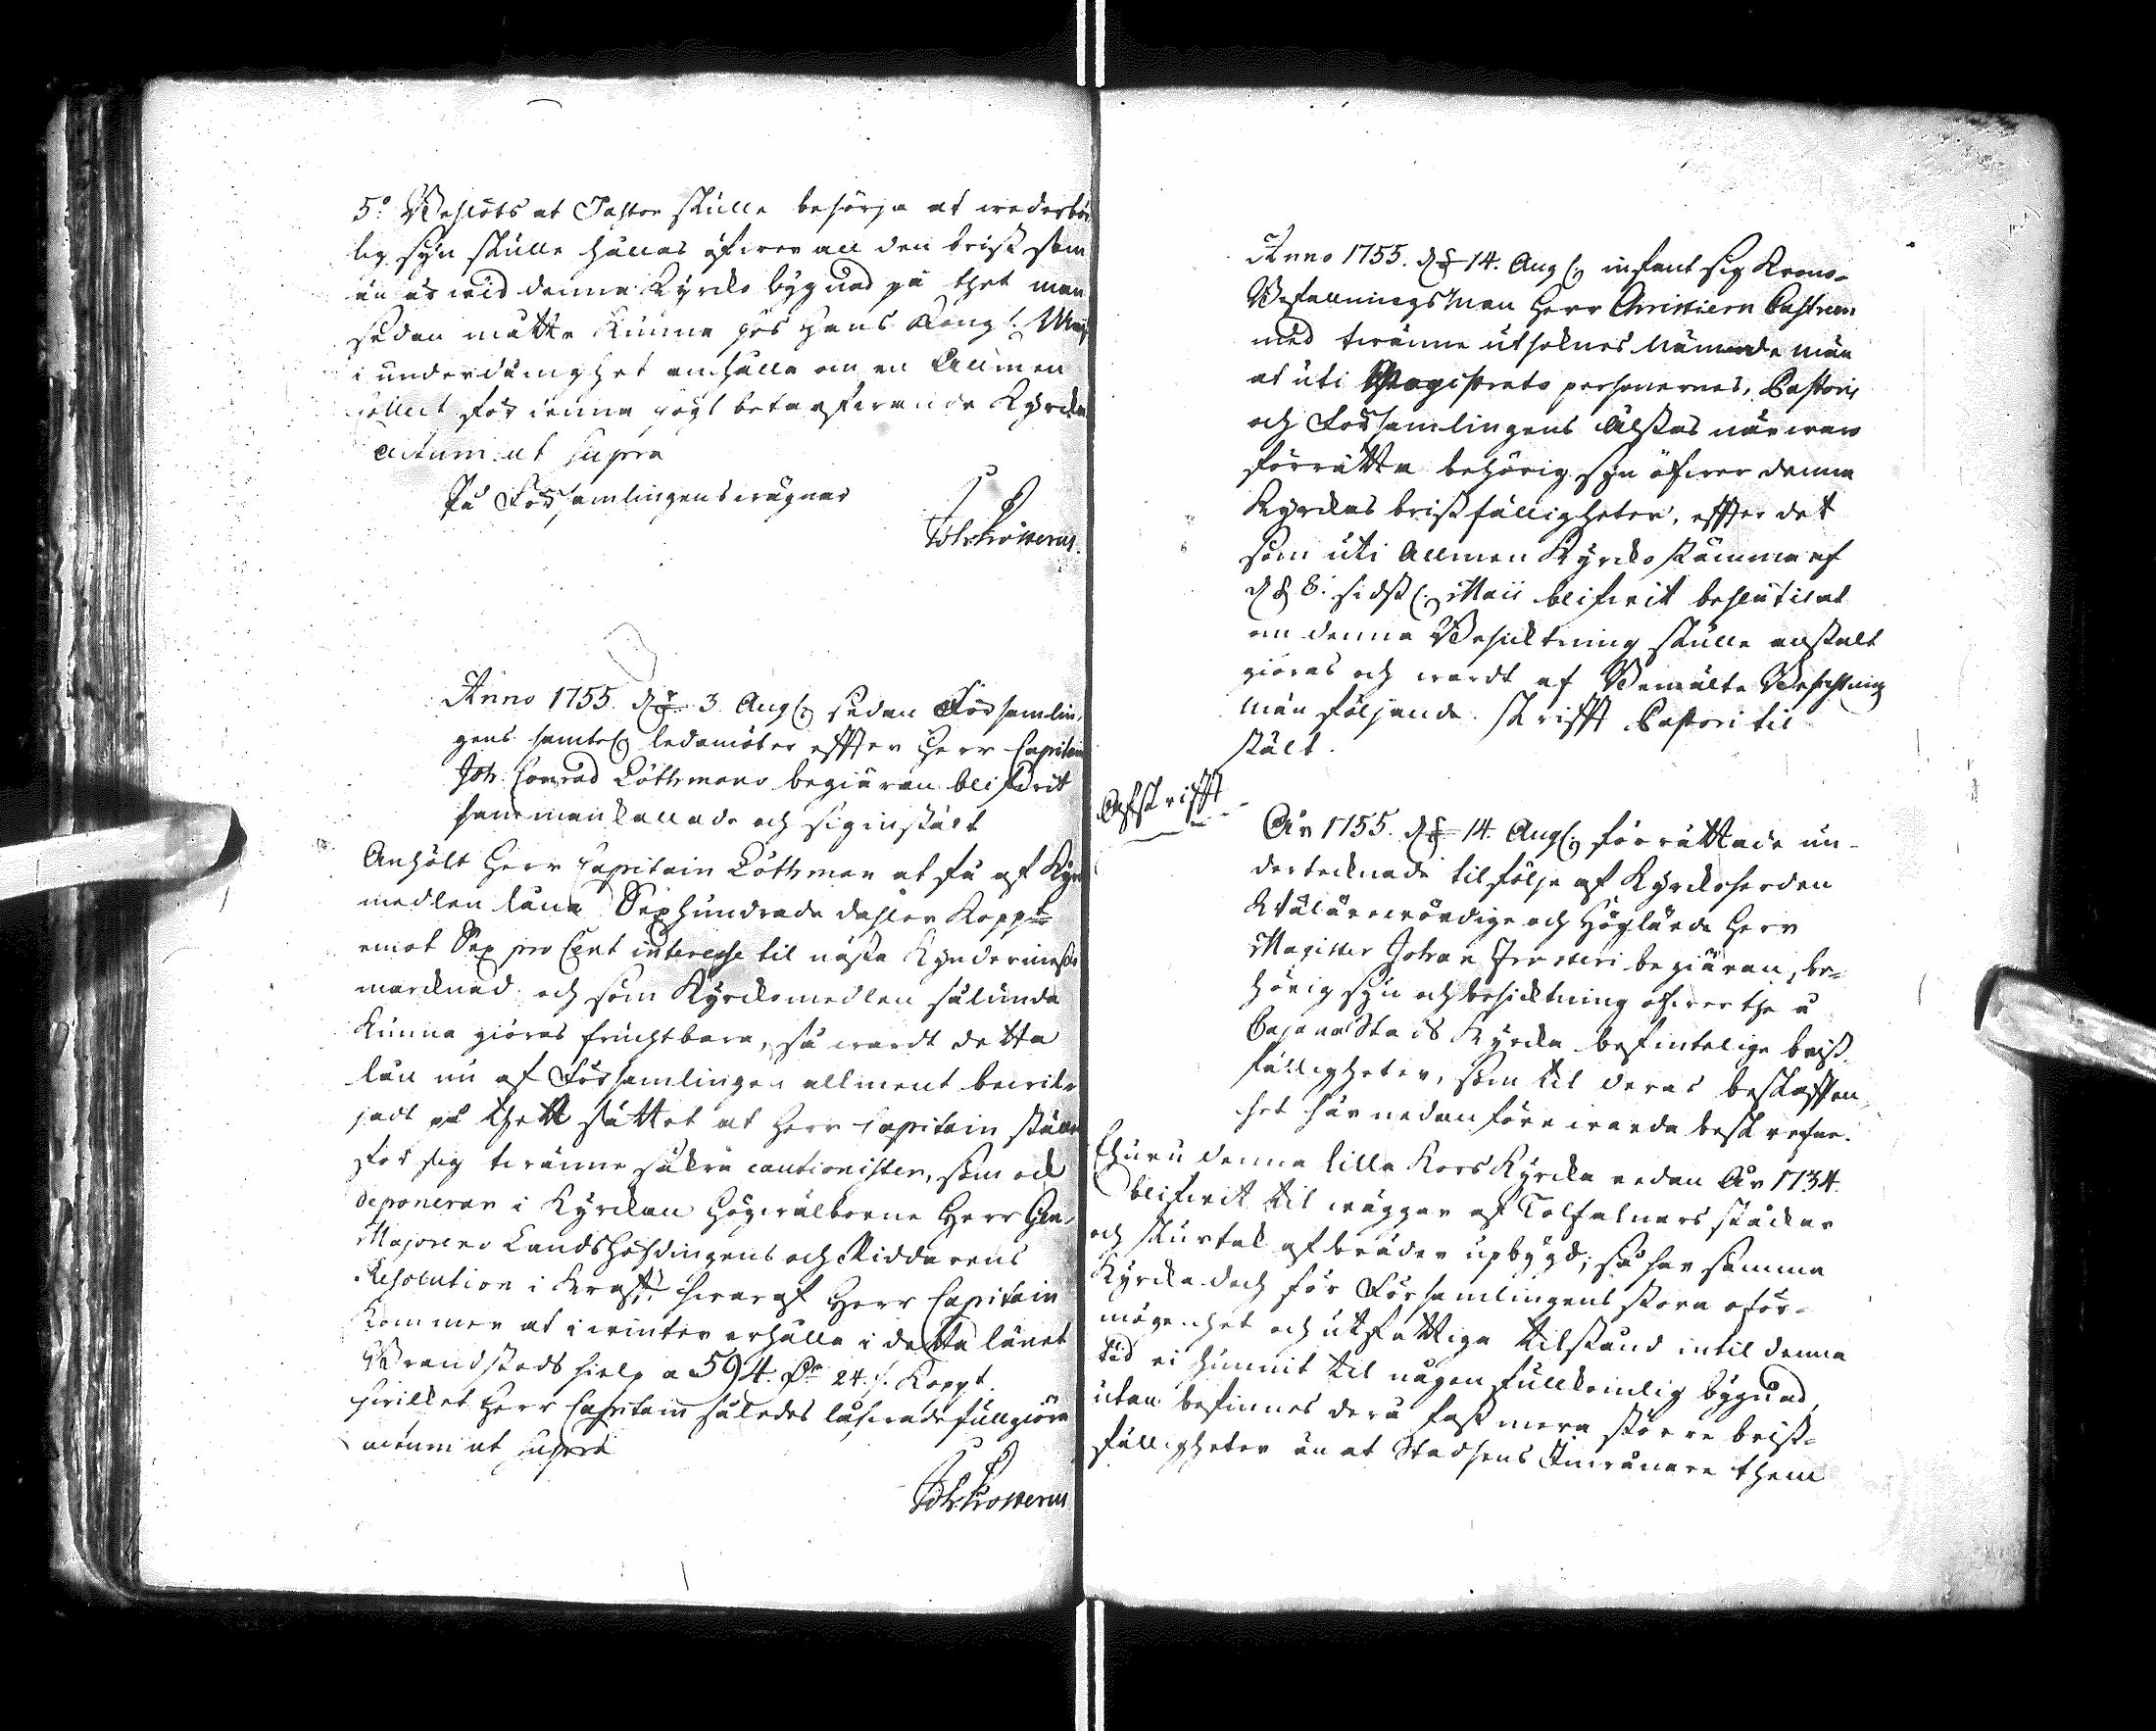 5:o Beslöts at Pastor skulle besörja at wederbör
lig syn skulle hållas öfwer all den brist som
än är wid denna Kyrcko bygnad på thet man
sedan måtte kunna hos Hans Kongl. Maij
i underdånighet anhålla om en Allmen
Collect för denna högt betarfwande Kyrcka
actum ut supra
På Församlingens wägnar
Joh: Frosterus.
Anno 1755. d. 3. Aug. sedan Församlin,
gens samtel. ledamöter effter Herr Capitain
Joh. Conrad Löthmans begiäran blifwit
sammankallade och sig instält
Anhölt Herr Capitain Löthman at få af Kyrk
medlen låna Sexhundrade daler Koppt
emot Sex pro Cent interesse til nästa Kyndermesse
marcknad och som Kyrckomedlen sålunda
kunna giöras fruchtbara, så wardt detta
lån nu af Församlingen allment bewil
jadt på thett sättet at Herr Capitain ställer
för sig twänne säkra cautionister, som ock
deponerar i Kyrckan Högwälborne Herr Gen,
Majorens Landshöfdingens och Riddarens
Resolution i Krafft hwaraf Herr Capitain
kommer at i winter erhålla i detta länet
Brandstods hielp a 594. dr 24. s. Koppt.
hwilket Herr Capitain således låfwade fullgiöra
actum ut supra
Joh: Frosterus
Anno 1755. d. 14. Aug. infant sig Krono-
Befallningsman Herr Christiern Castreen
med twänne utsoknes Nämndemän
at uti Magistrats personernes, Pastoris
och Församlingens Älstas närwaro
förrätta behörig syn öfwer denna
Kyrckas bristfälligheter, effter det
som uti Allmen Kyrcko stämma af
d. 8. sidstl. Maii blifwit beslutit at
om denna Besicktning skulle anstalt
giöras och wardt af Bemälte Besichtning
män följande skrifft Pastori til
stält.
Afskrifft
År 1755. d. 14. Aug. förrättade un-
dertecknade til följe af Kyrckoherden
Wälärewördige och Höglärde Herr
Magister Johan Frosteri begiäran, be-
hörig syn och besicktning öfwer the å
Cajana Stads Kyrcka befintelige brist,
fälligheter, som til deras beskaffen,
het här nedanföre warda beskrefne.
Ehuru denna lilla Kors Kyrcka redan År 1734.
blifwit til wäggar af Tolfalnars stäckar
och skurtak af bräder upbygd; så har samma
Kyrcka doch för Församlingens stora oför-
mögenhet och utfattiga tilstånd intil denna
tid ei hunnit til någon fullkomlig bygnad,
utan befinnes dera fast mera större brist-
fälligheter än at Stadsens Inwånare them